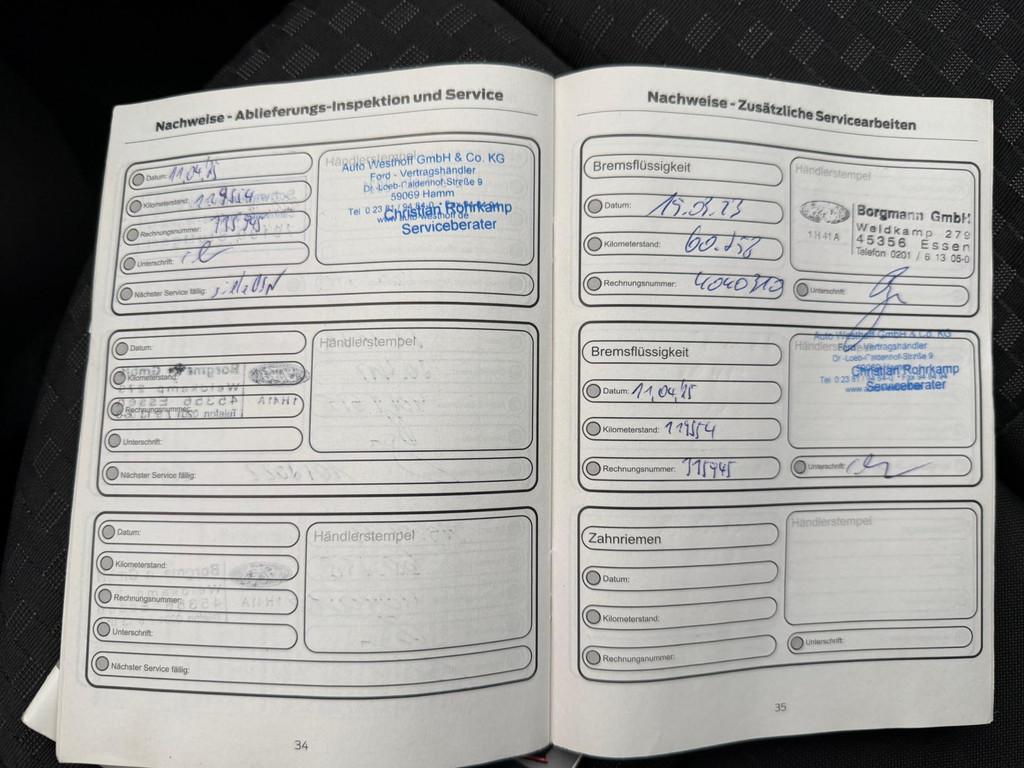 Nachweise - Ablieferungs-Inspektion und Service
Datum: 11.04.25
Kilometerstand: 119554
Rechnungsnummer: 115945
Unterschrift:
Nächster Service fällig:
Händlerstempel
Auto Westhoff GmbH & Co. KG
Ford - Vertragshändler
Dr.-Loeb-Caldenhof-Straße 9
59069 Hamm
Christian Rohrkamp
Serviceberater
Datum:
Kilometerstand:
Rechnungsnummer:
Unterschrift:
Nächster Service fällig:
Händlerstempel
Datum:
Kilometerstand:
Rechnungsnummer:
Unterschrift:
Nächster Service fällig:
Händlerstempel
34
Nachweise - Zusätzliche Servicearbeiten
Bremsflüssigkeit
Datum:
Kilometerstand: 60.758
Rechnungsnummer: 4040319
Händlerstempel
1H41A
Borgmann GmbH
Weidkamp 279
45356 Essen
Telefon 0201 / 6 13 05-0
Unterschrift:
Bremsflüssigkeit
Datum: 11.04.25
Kilometerstand: 119554
Rechnungsnummer: 115945
Händlerstempel
Auto Westhoff GmbH & Co. KG
Ford - Vertragshändler
Dr.-Loeb-Caldenhof-Straße 9
Christian Rohrkamp
Serviceberater
Unterschrift:
Zahnriemen
Datum:
Kilometerstand:
Rechnungsnummer:
Händlerstempel
Unterschrift:
35